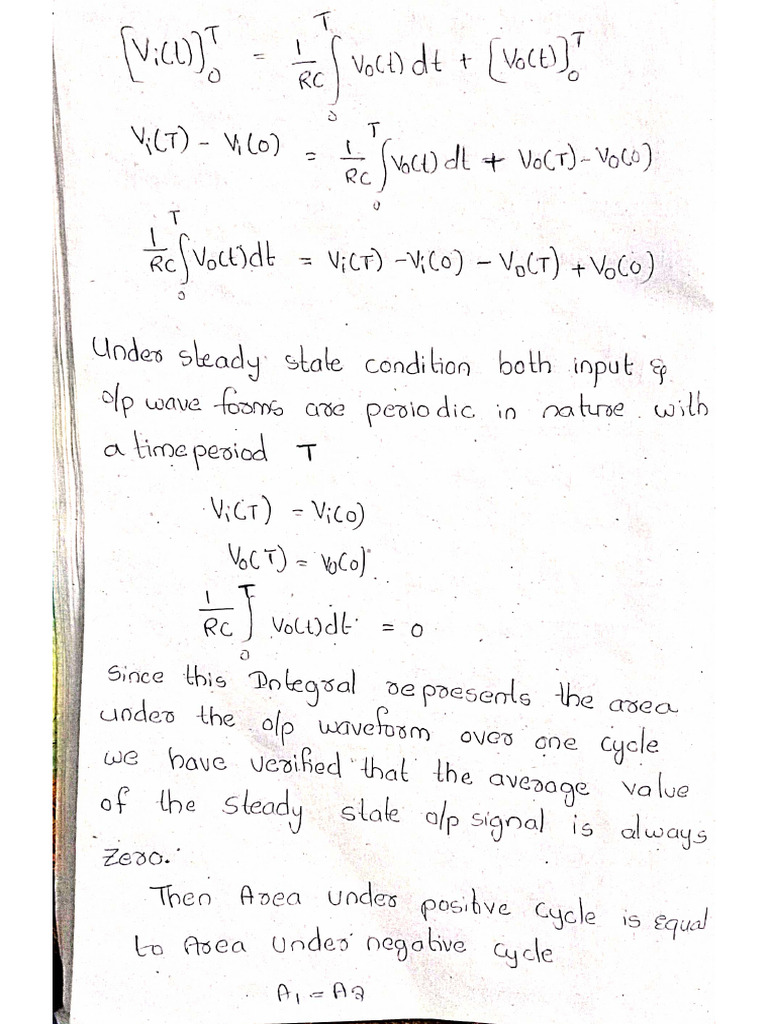 [Vi(t)]₀ᵀ = 1/RC ∫₀ᵀ Vo(t) dt + [Vo(t)]₀ᵀ
Vi(T) - Vi(0) = 1/RC ∫₀ᵀ Vo(t) dt + Vo(T) - Vo(0)
1/RC ∫₀ᵀ Vo(t) dt = Vi(T) - Vi(0) - Vo(T) + Vo(0)
Under steady state condition both input &
o/p wave forms are periodic in nature with
a time period T
Vi(T) = Vi(0)
Vo(T) = Vo(0)
1/RC ∫₀ᵀ Vo(t) dt = 0
Since this Integral represents the area
under the o/p waveform over one cycle
we have verified that the average value
of the steady state o/p signal is always
zero.
Then Area under positive cycle is equal
to Area under negative cycle
A₁ = A₂